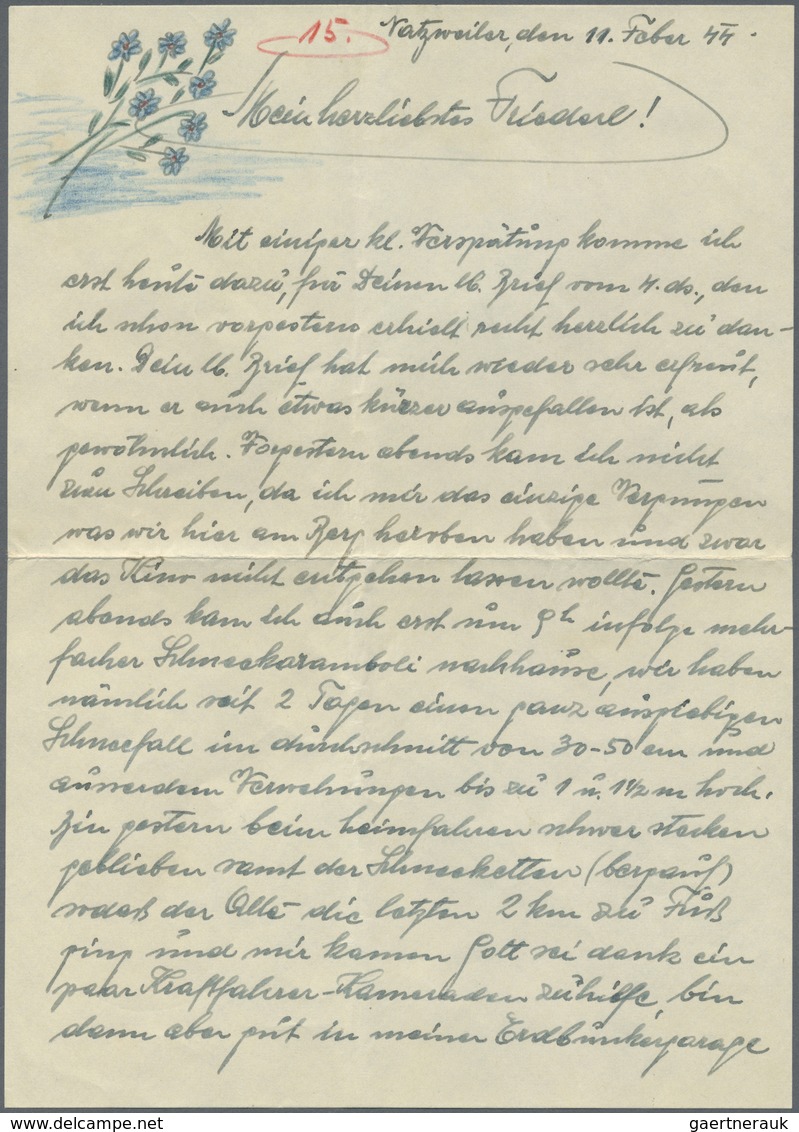 15.
Natzweiler, den 11. Feber 44.
Mein herzliebstes Friederl!
Mit einiger kl. Verspätung komme ich
erst heute dazu, für Deinen lb. Brief vom 4. ds., den
ich schon vorgestern erhielt recht herzlich zu dan-
ken. Dein lb. Brief hat mich wieder sehr erfreut,
wenn er auch etwas kürzer ausgefallen ist, als
gewöhnlich. Vorgestern abends kam ich nicht
zum Schreiben, da ich mir das einzige Vergnügen
was wir hier am Berg heroben haben und zwar
das Kino nicht entgehen lassen wollte. Gestern
abends kam ich auch erst um 9h infolge mehr-
facher Schneekaramboli nachhause, wir haben
nämlich seit 2 Tagen einen ganz ausgiebigen
Schneefall im durchschnitt von 30-50 cm und
ausserdem Verwehungen bis zu 1 u. 1½ m hoch.
Bin gestern beim heimfahren schwer stecken
geblieben samt der Schneeketten (bergauf)
sodaß der Alte die letzten 2 km zu Fuß
ging und mir kamen Gott sei dank ein
paar Kraftfahrer-Kameraden zuhilfe, bin
dann aber gut in meiner Erdbunkergarage
gaertnerauk